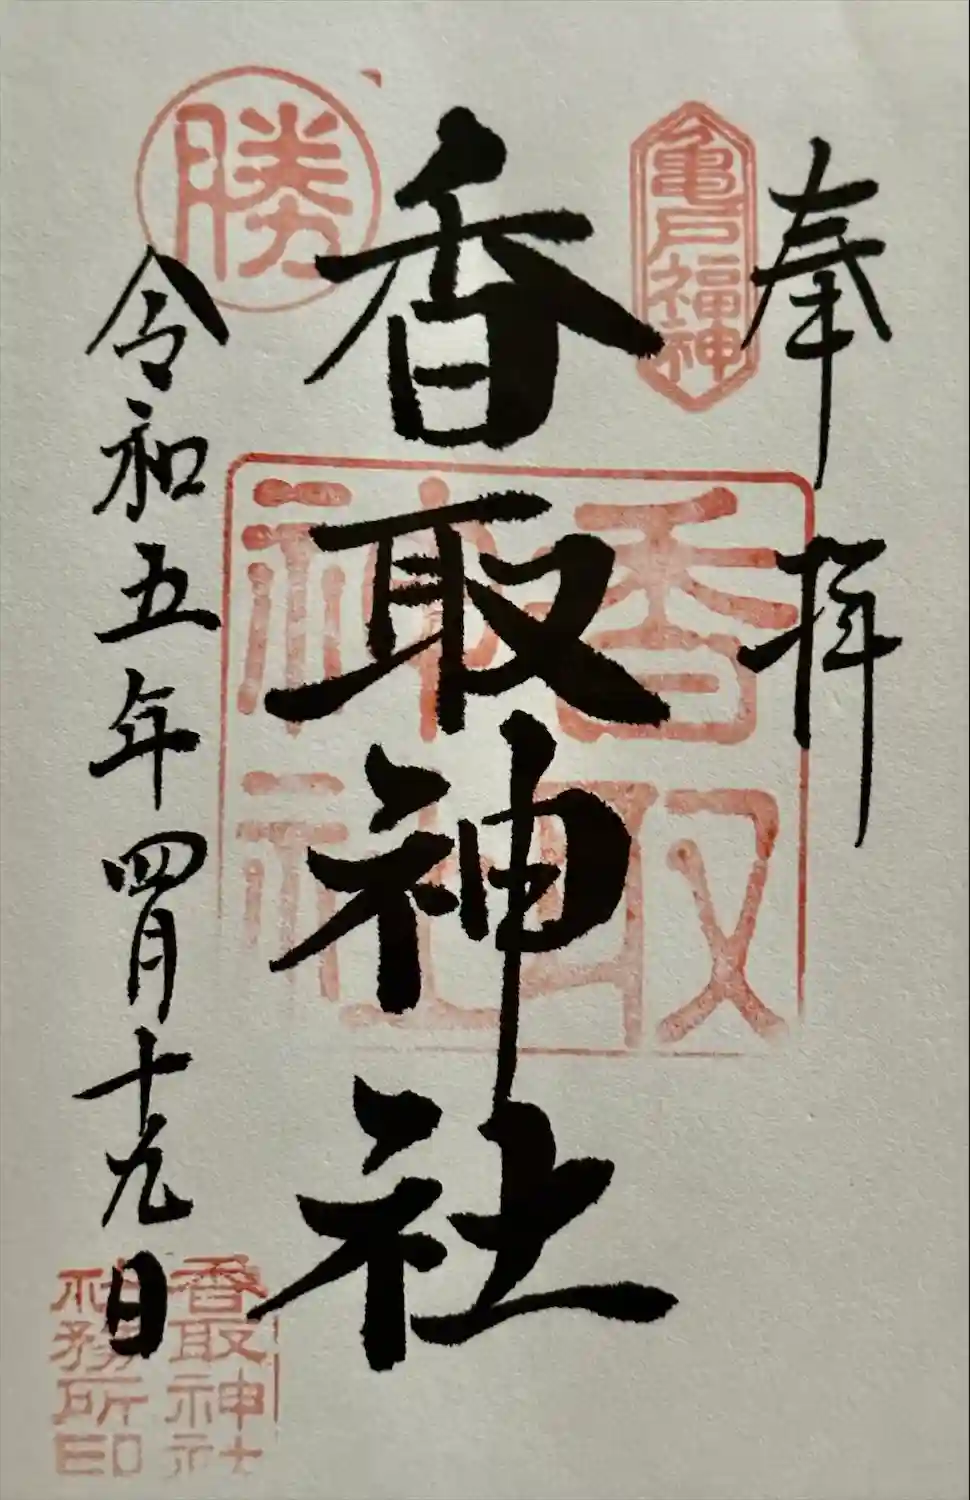 奉拝
亀戸福神
香取神社
香取
神社
勝
令和五年四月十九日
香取神社
社務所印